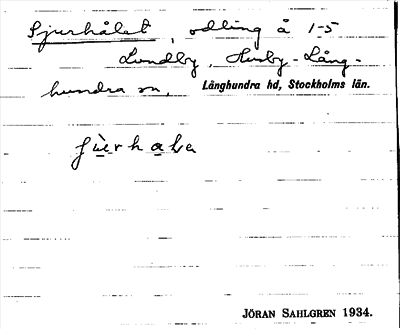 Sjurhålet, odling å 1-5
Lundby, Husby-Lång-
hundra sn, Långhundra hd, Stockholms län.
JÖRAN SAHLGREN 1934.